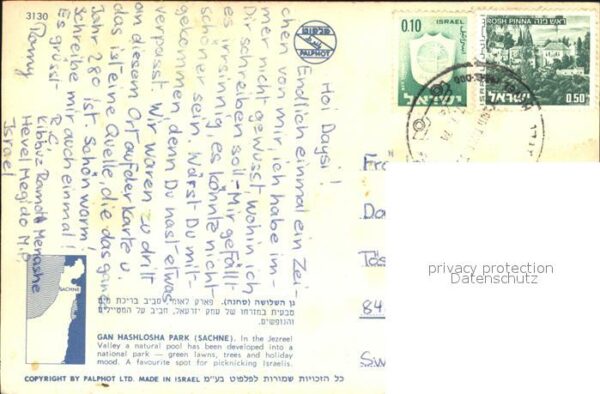 3130
PALPHOT
Hoi Daysi!
Endlich einmal ein Zei-
chen von mir, ich habe im-
mer nicht gewusst, wohin ich
Dir schreiben soll - Mir gefällt
es irrsinnig, es könnte nicht
schöner sein. Wärst Du mit-
gekommen, denn Du hast etwas
verpasst. Wir waren zu dritt
an diesem Ort auf der Karte u.
das ist eine Quelle, die das ganze
Jahr 28° ist. Schön warm!
Schreibe mir auch einmal!
Es grüsst
R.C.
Kibbuz Ramoth Menashe
Hevel Megido M.P.
Israel
ISRAEL
0.10
ישראל
ROSH PINNA ראש פנה
ISRAEL
ישראל
0.50
Fra
Da
Täs
84
Sw
privacy protection
Datenschutz
SACHNE
גן השלושה (סחנה). פארק לאומי סביב בריכת מים
טבעית במזרחו של עמק יזרעאל, חביב על המטיילים
והנופשים.
GAN HASHLOSHA PARK (SACHNE). In the Jezreel
Valley a natural pool has been developed into a
national park — green lawns, trees and holiday
mood. A favourite spot for picknicking Israelis.
COPYRIGHT BY PALPHOT LTD. MADE IN ISRAEL כל הזכויות שמורות לפלפוט בע"מ